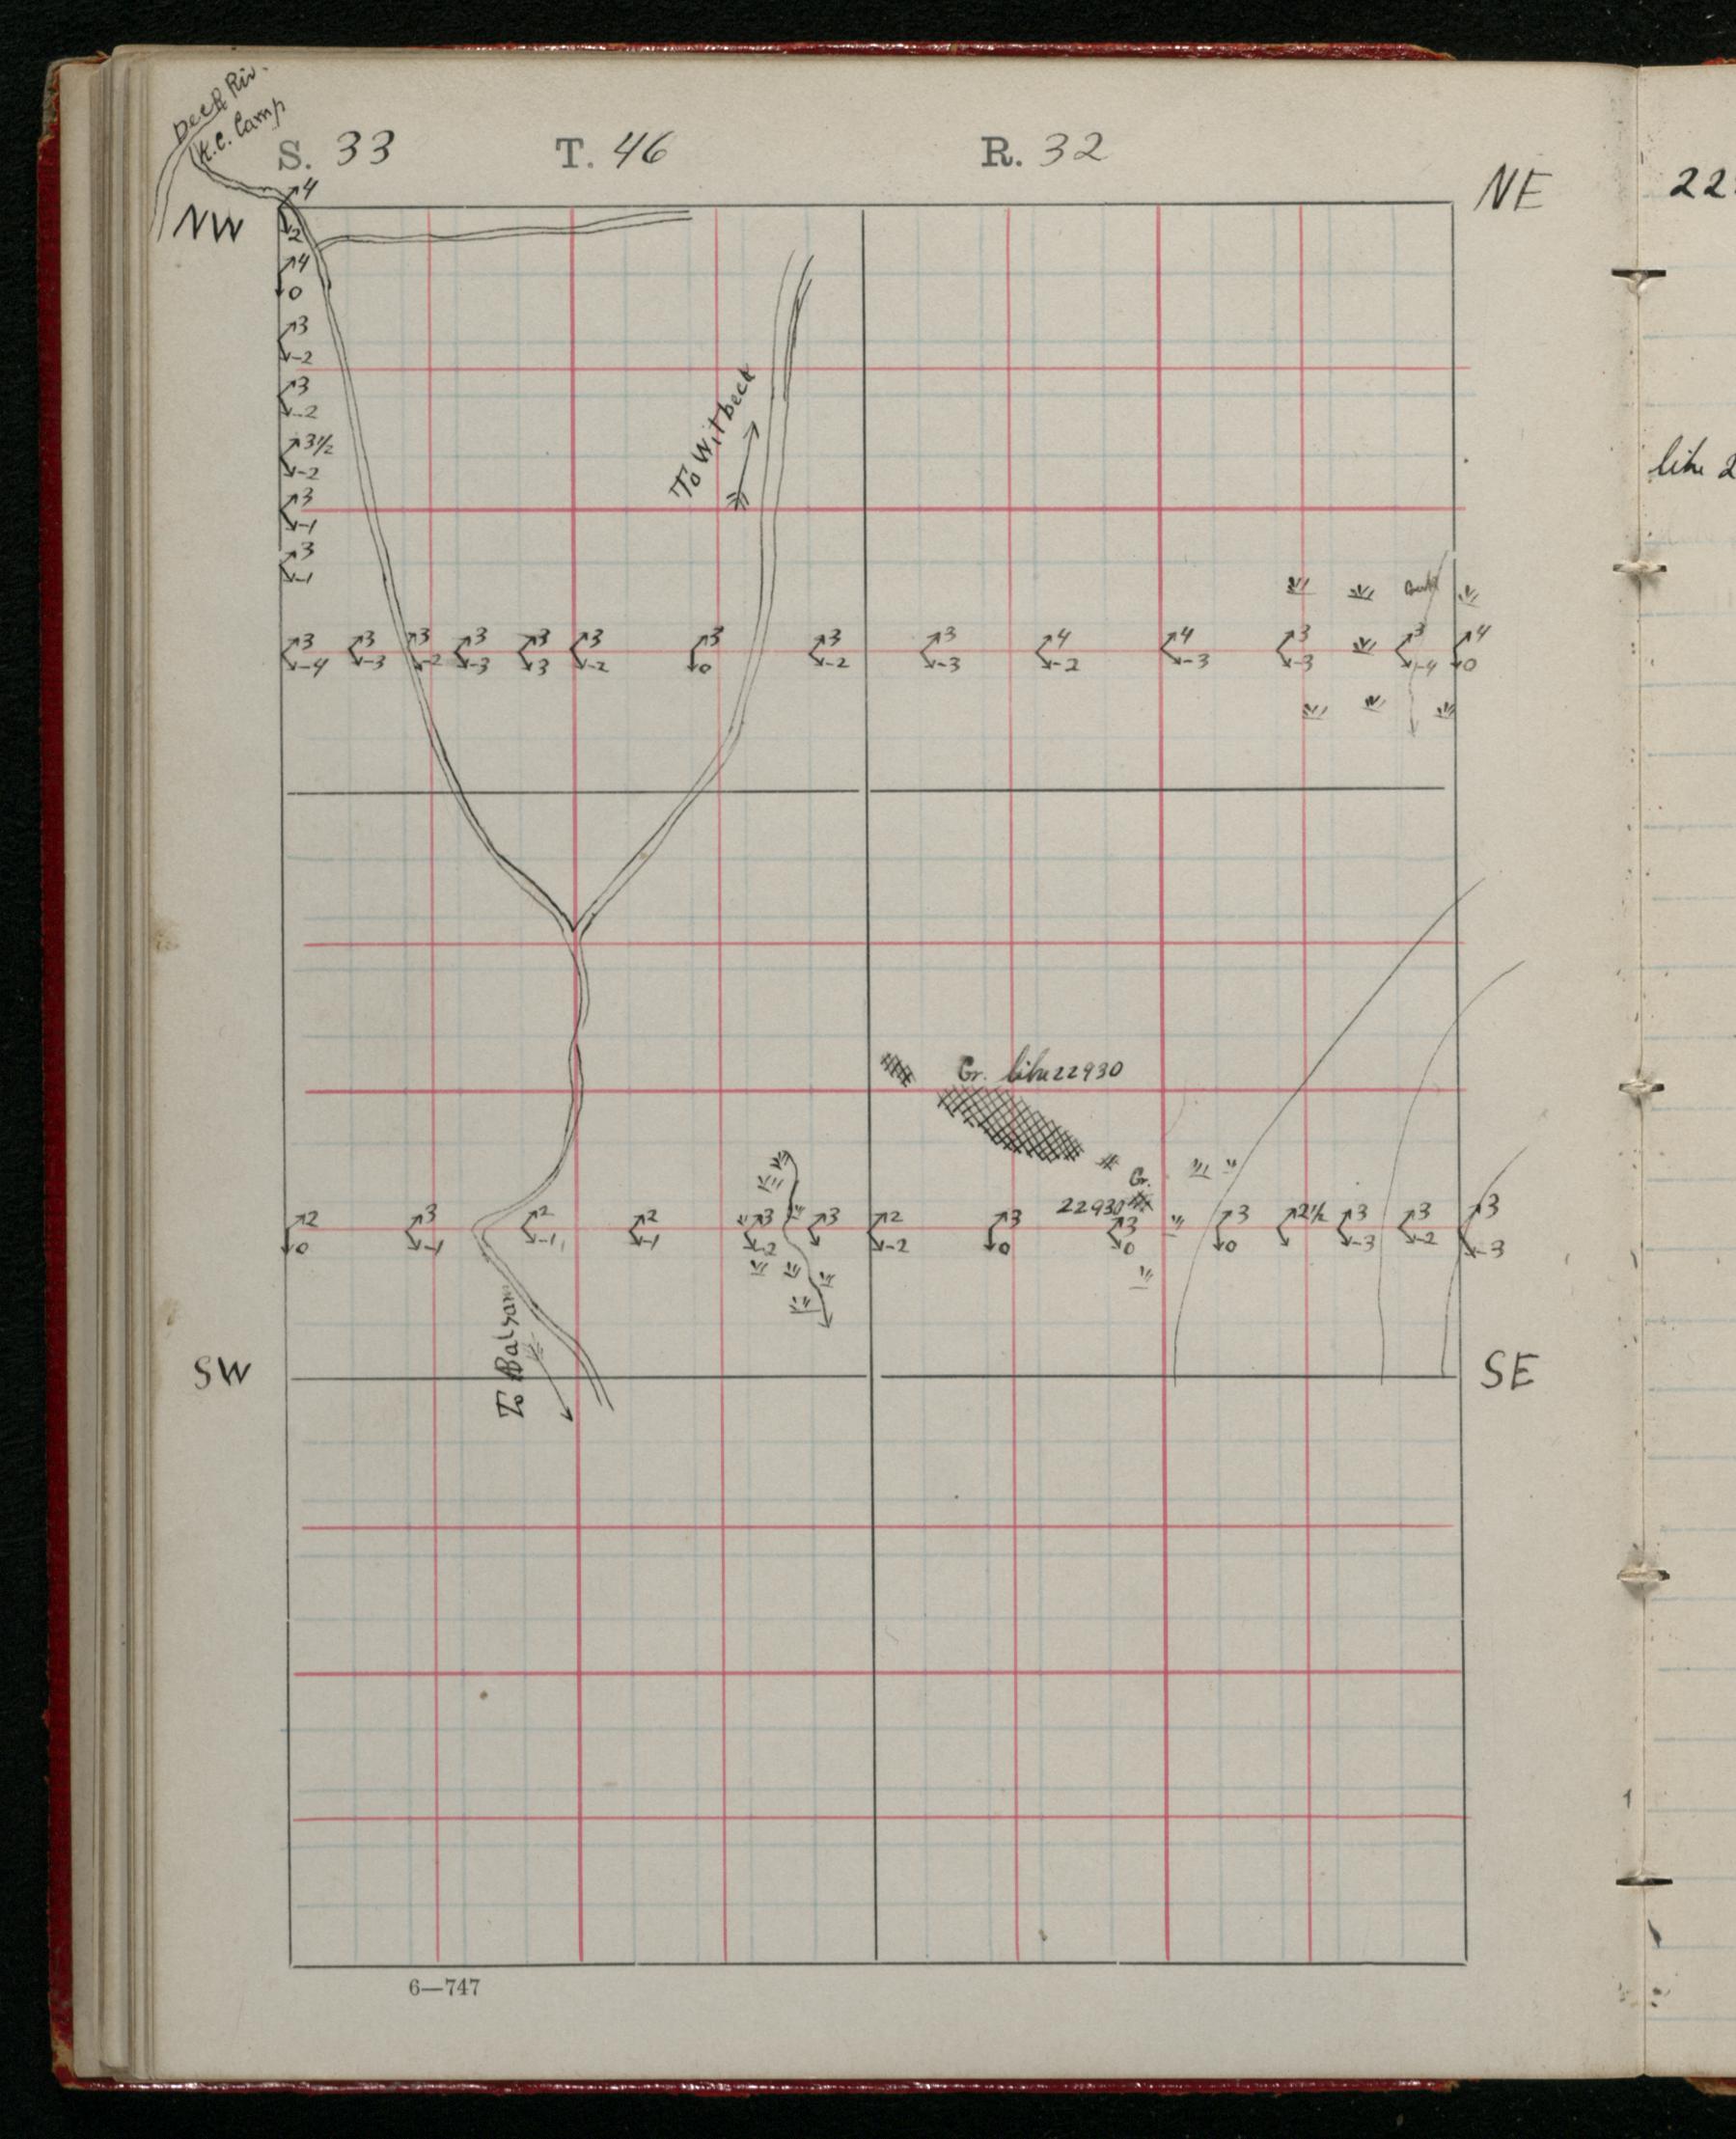 Deer Riv.
K.C. Camp
S. 33 T. 46 R. 32
NW
NE
22
4
2
4
0
3
-2
3
-2
3½
-2
3
-1
3
-1
To Witbeck
like 2
3 3 3 3 3 3 3 3 3 4 4 3 3 4
-4 -3 -2 -3 3 -2 0 -2 -3 -2 -3 -3 -4 0
Gr. like 22930
Gr.
22930
2 3 2 2 3 3 2 3 3 3 2½ 3 3 3
0 -1 -1 -1 -2 -2 0 0 0 -3 -2 -3
To Balsam
SW
SE
6—747